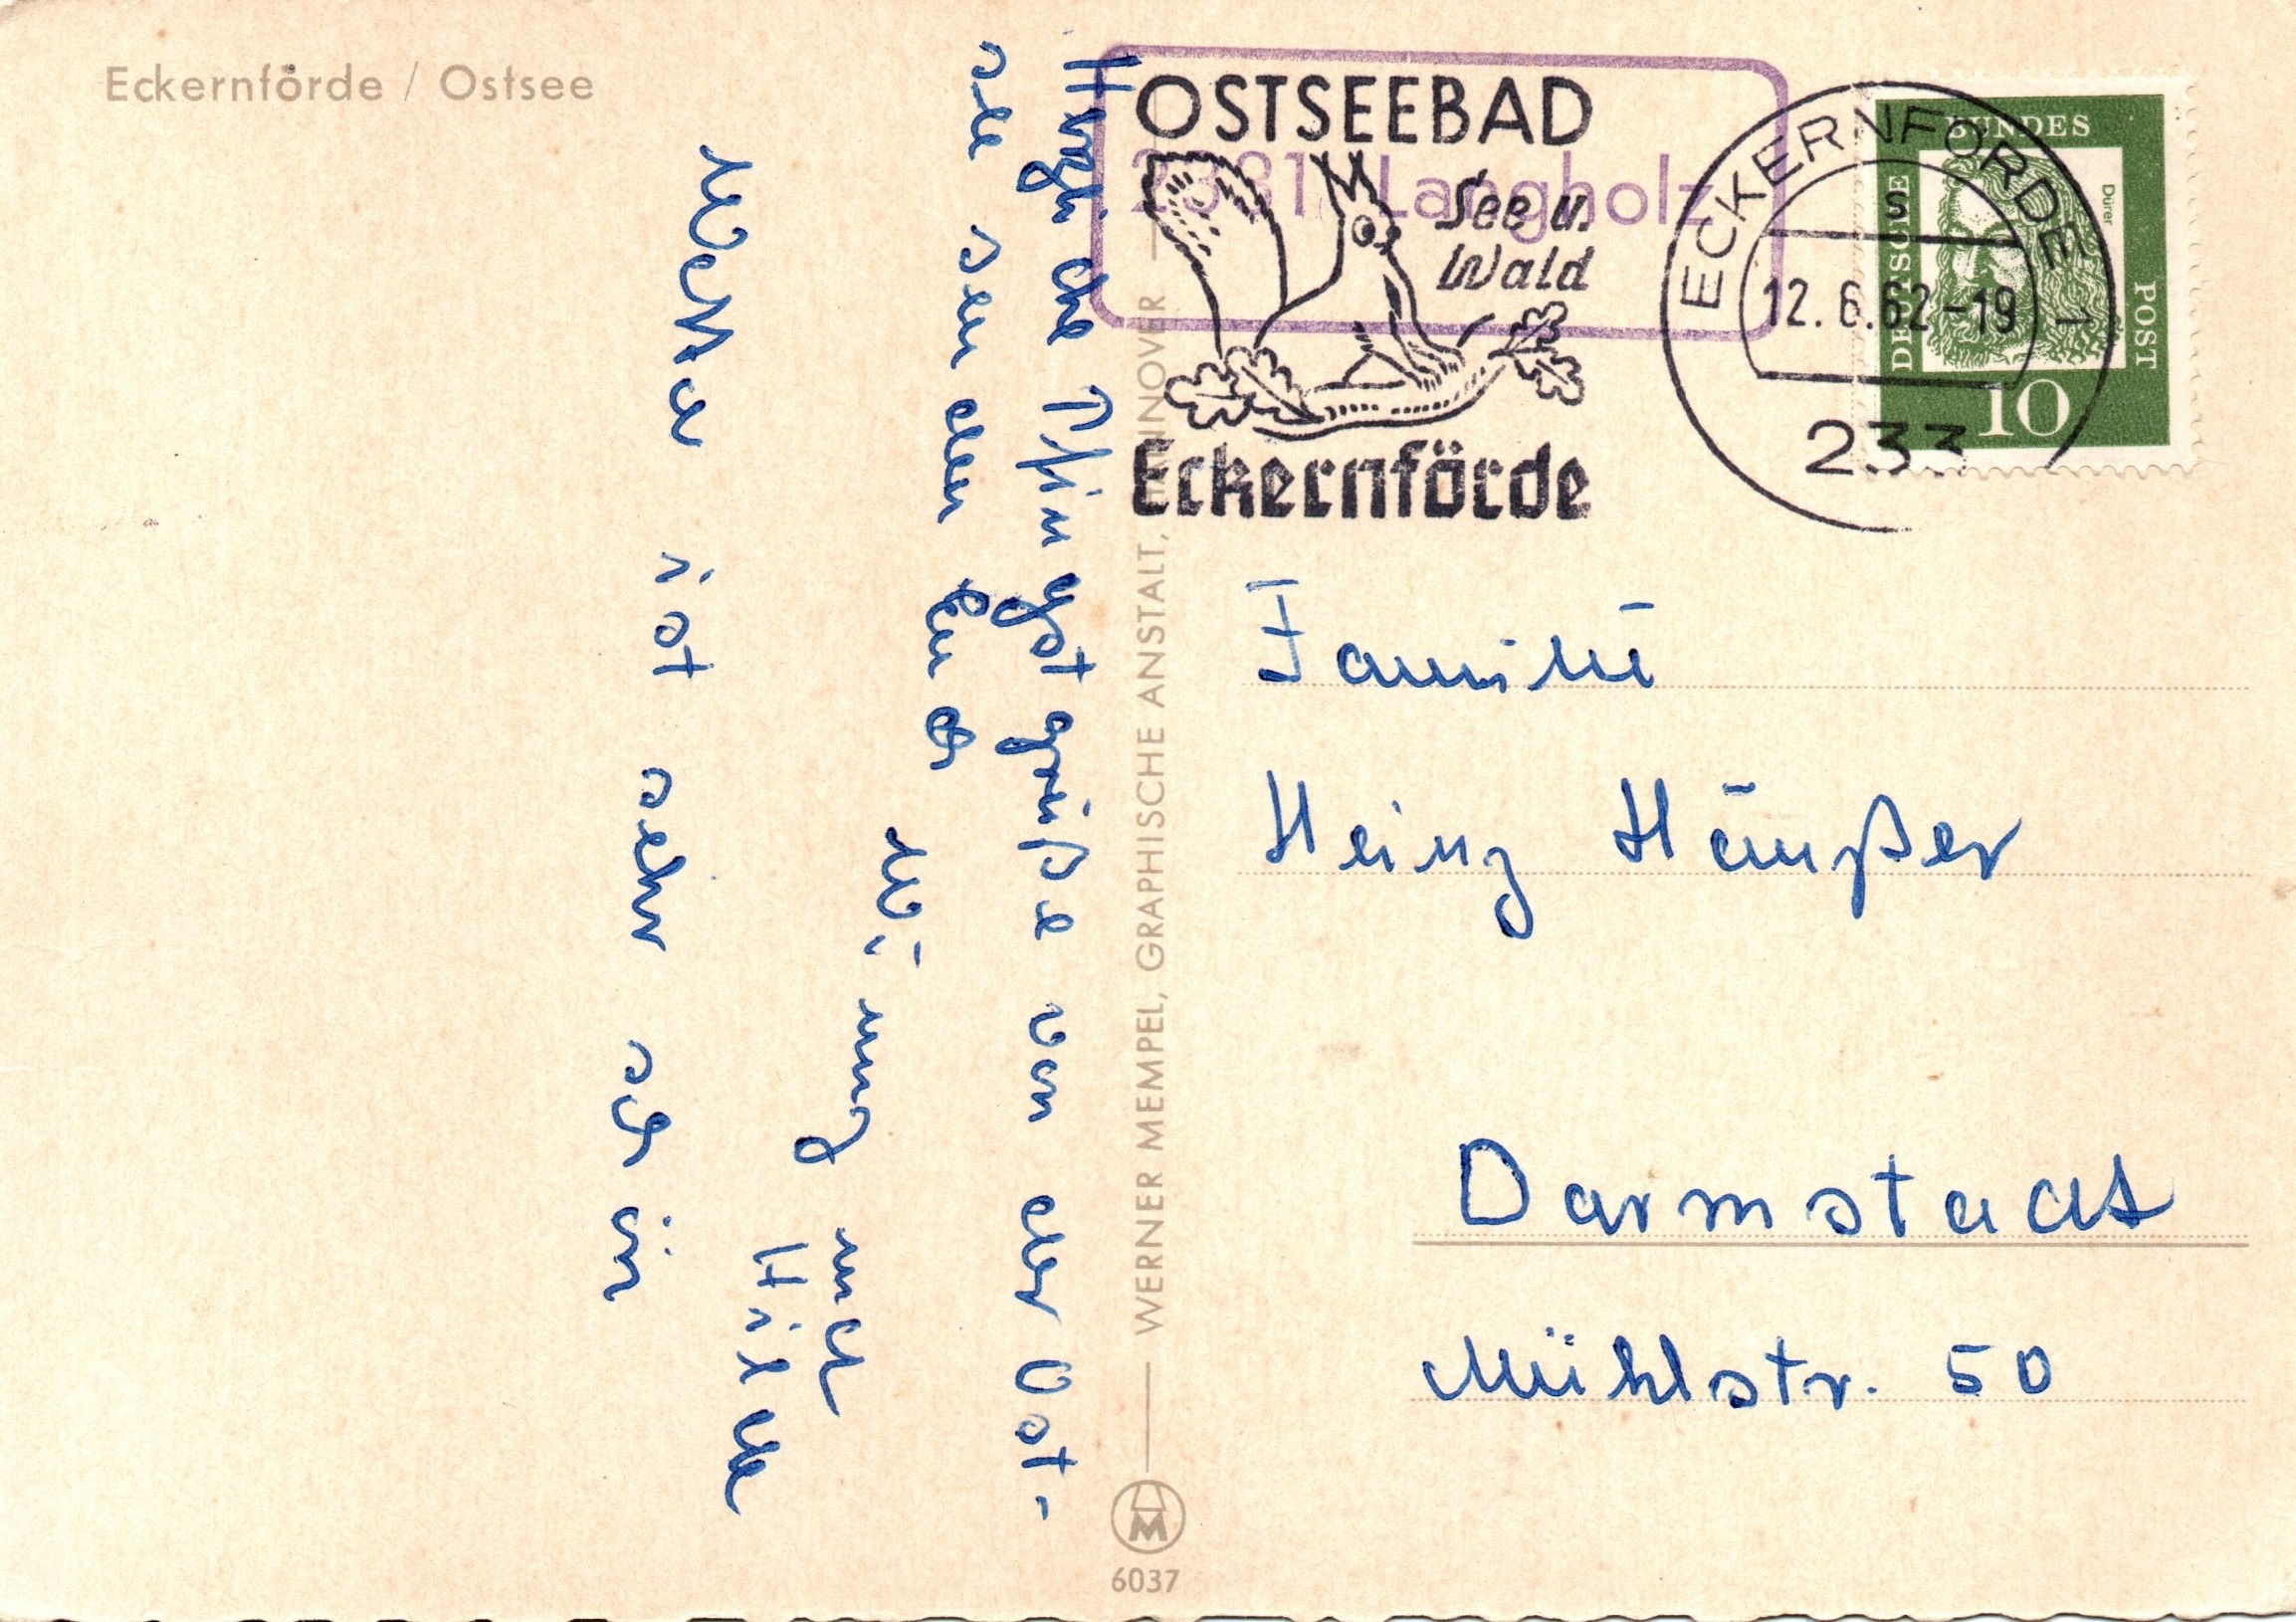 Eckernförde / Ostsee
Herzliche Pfingstgrüße von der Ost-
see senden Euch
Wolfgang und
Hilde
Wetter ist sehr schön
WERNER MEMPEL, GRAPHISCHE ANSTALT, HANNOVER
6037
2331 Langholz
OSTSEEBAD
See u.
Wald
Eckernförde
ECKERNFÖRDE 1
s
12.6.62-19
233
DEUTSCHE BUNDESPOST
Dürer
10
Familie
Heinz Häußer
Darmstadt
Mühlstr. 50